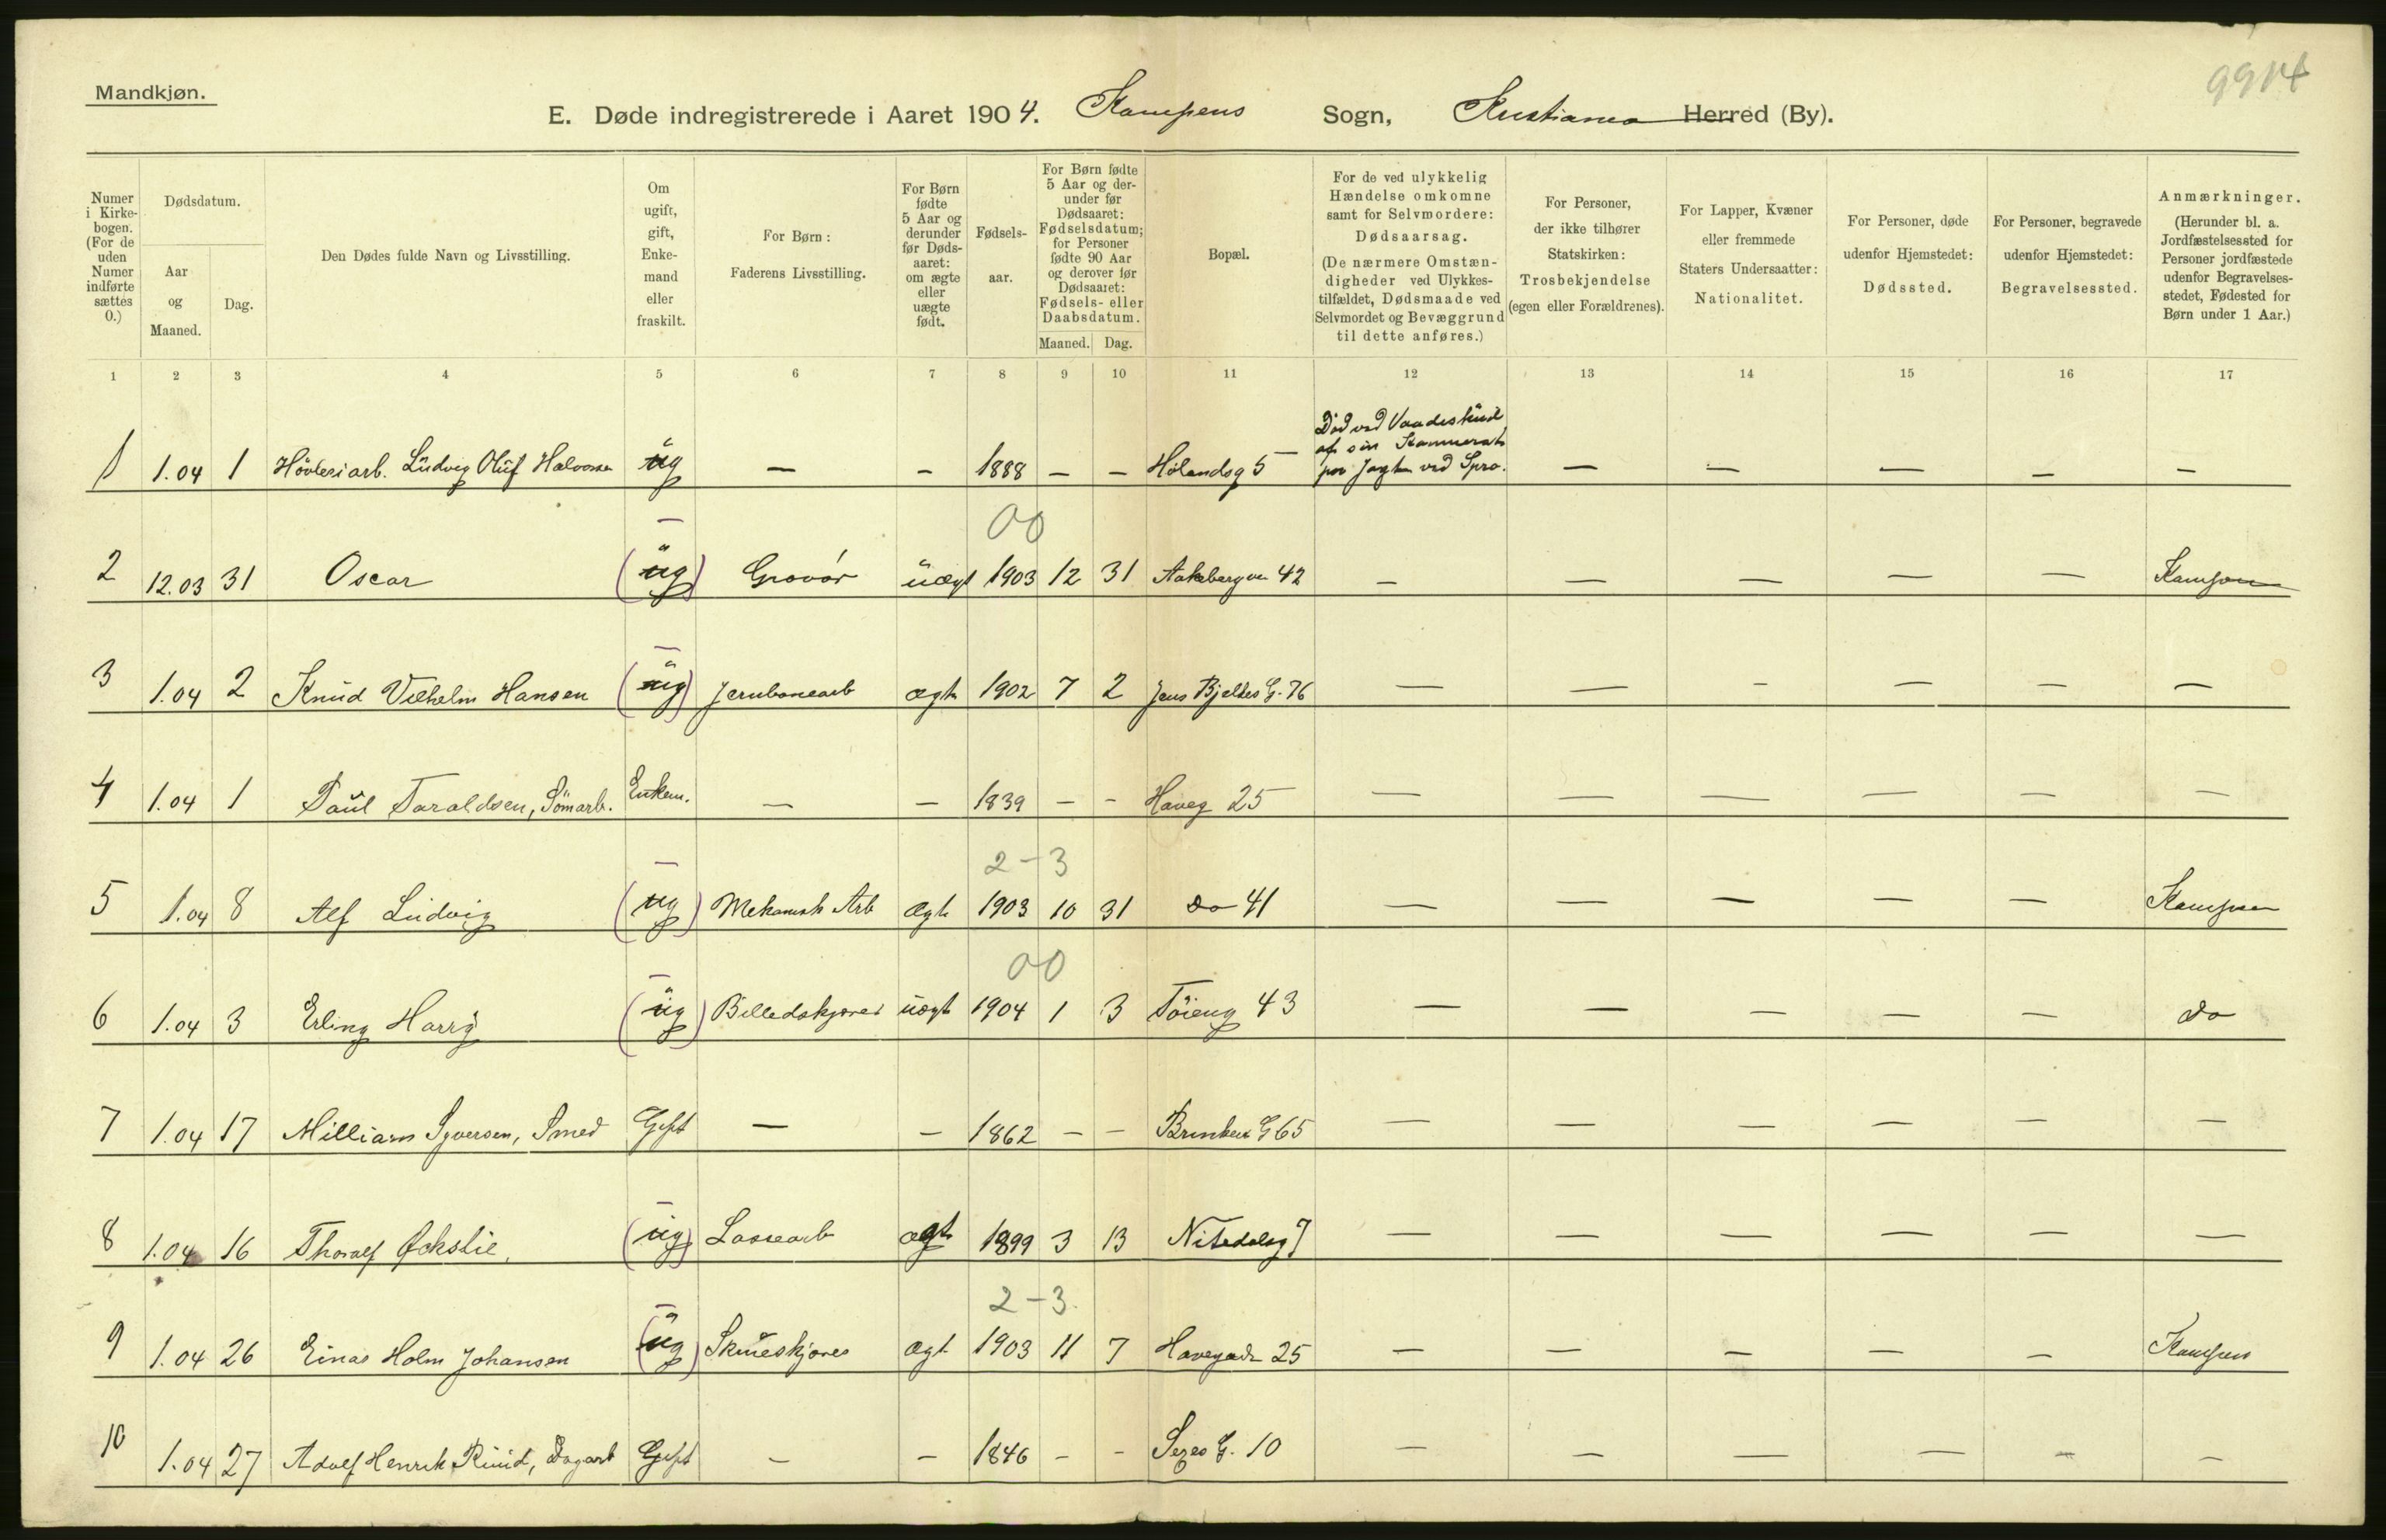 Mandkjøn.
9914
E. Døde indregistrerede i Aaret 1904. Kampens Sogn, Kristiania Herred (By).
Numer i Kirkebogen. (For de uden Numer indførte sættes 0.)
Dødsdatum.
Aar og Maaned.
Dag.
Den Dødes fulde Navn og Livsstilling.
Om ugift, gift, Enkemand eller fraskilt.
For Børn: Faderens Livsstilling.
For Børn fødte 5 Aar og derunder før Dødsaaret: om ægte eller uægte født.
Fødselsaar.
For Børn fødte 5 Aar og derunder før Dødsaaret: Fødselsdatum; for Personer fødte 90 Aar og derover før Dødsaaret: Fødsels- eller Daabsdatum.
Maaned. Dag.
Bopæl.
For de ved ulykkelig Hændelse omkomne samt for Selvmordere: Dødsaarsag. (De nærmere Omstændigheder ved Ulykkestilfældet, Dødsmaade ved Selvmordet og Bevæggrund til dette anføres.)
For Personer, der ikke tilhører Statskirken: Trosbekjendelse (egen eller Forældrenes).
For Lapper, Kvæner eller fremmede Staters Undersaatter: Nationalitet.
For Personer, døde udenfor Hjemstedet: Dødssted.
For Personer, begravede udenfor Hjemstedet: Begravelsessted.
Anmærkninger. (Herunder bl. a. Jordfæstelsessted for Personer jordfæstede udenfor Begravelsesstedet, Fødested for Børn under 1 Aar.)
1 2 3 4 5 6 7 8 9 10 11 12 13 14 15 16 17
1 1.04 1 Høvleriarb. Ludvig Oluf Halvorsen ug — — 1888 — — Hølandsg 5 Död ved Vaadeskud af sin Kammerat paa Jagten ved Spro. — — — — —
00
2 12.03 31 Oscar (ug) Gravør uægt 1903 12 31 Aakebergvn 42 — — — — — Kampen
3 1.04 2 Knud Vilhelm Hansen (ug) Jernbanearb ægte 1902 7 2 Jens Bjelkes G. 76 — — — — — —
4 1.04 1 Paul Taraldsen, Sömarb. Enkem. — — 1839 — — Haveg 25 — — — — — —
2-3
5 1.04 8 Alf Ludvig (ug) Mekanisk Arb Ægte 1903 10 31 do 41 — — — — — Kampen
00
6 1.04 3 Erling Harry (ug) Billedskjærer uægt 1904 1 3 Töieng 43 — — — — — do
7 1.04 17 William Syversen, Smed Gift — — 1862 — — Brinken G 65 — — — — — —
8 1.04 16 Thoralf Økslie, (ug) Lossearb ægte 1899 3 13 Nitedalsg 7 — — — — — —
2-3.
9 1.04 26 Einar Holm Johansen (ug) ægt 1903 11 7 Havegaden 25 — — — — — Kampen
10 1.04 27 Adolf Henrik Ruud, Dagarb Gift — — 1846 — — G. 10 — — — — — —